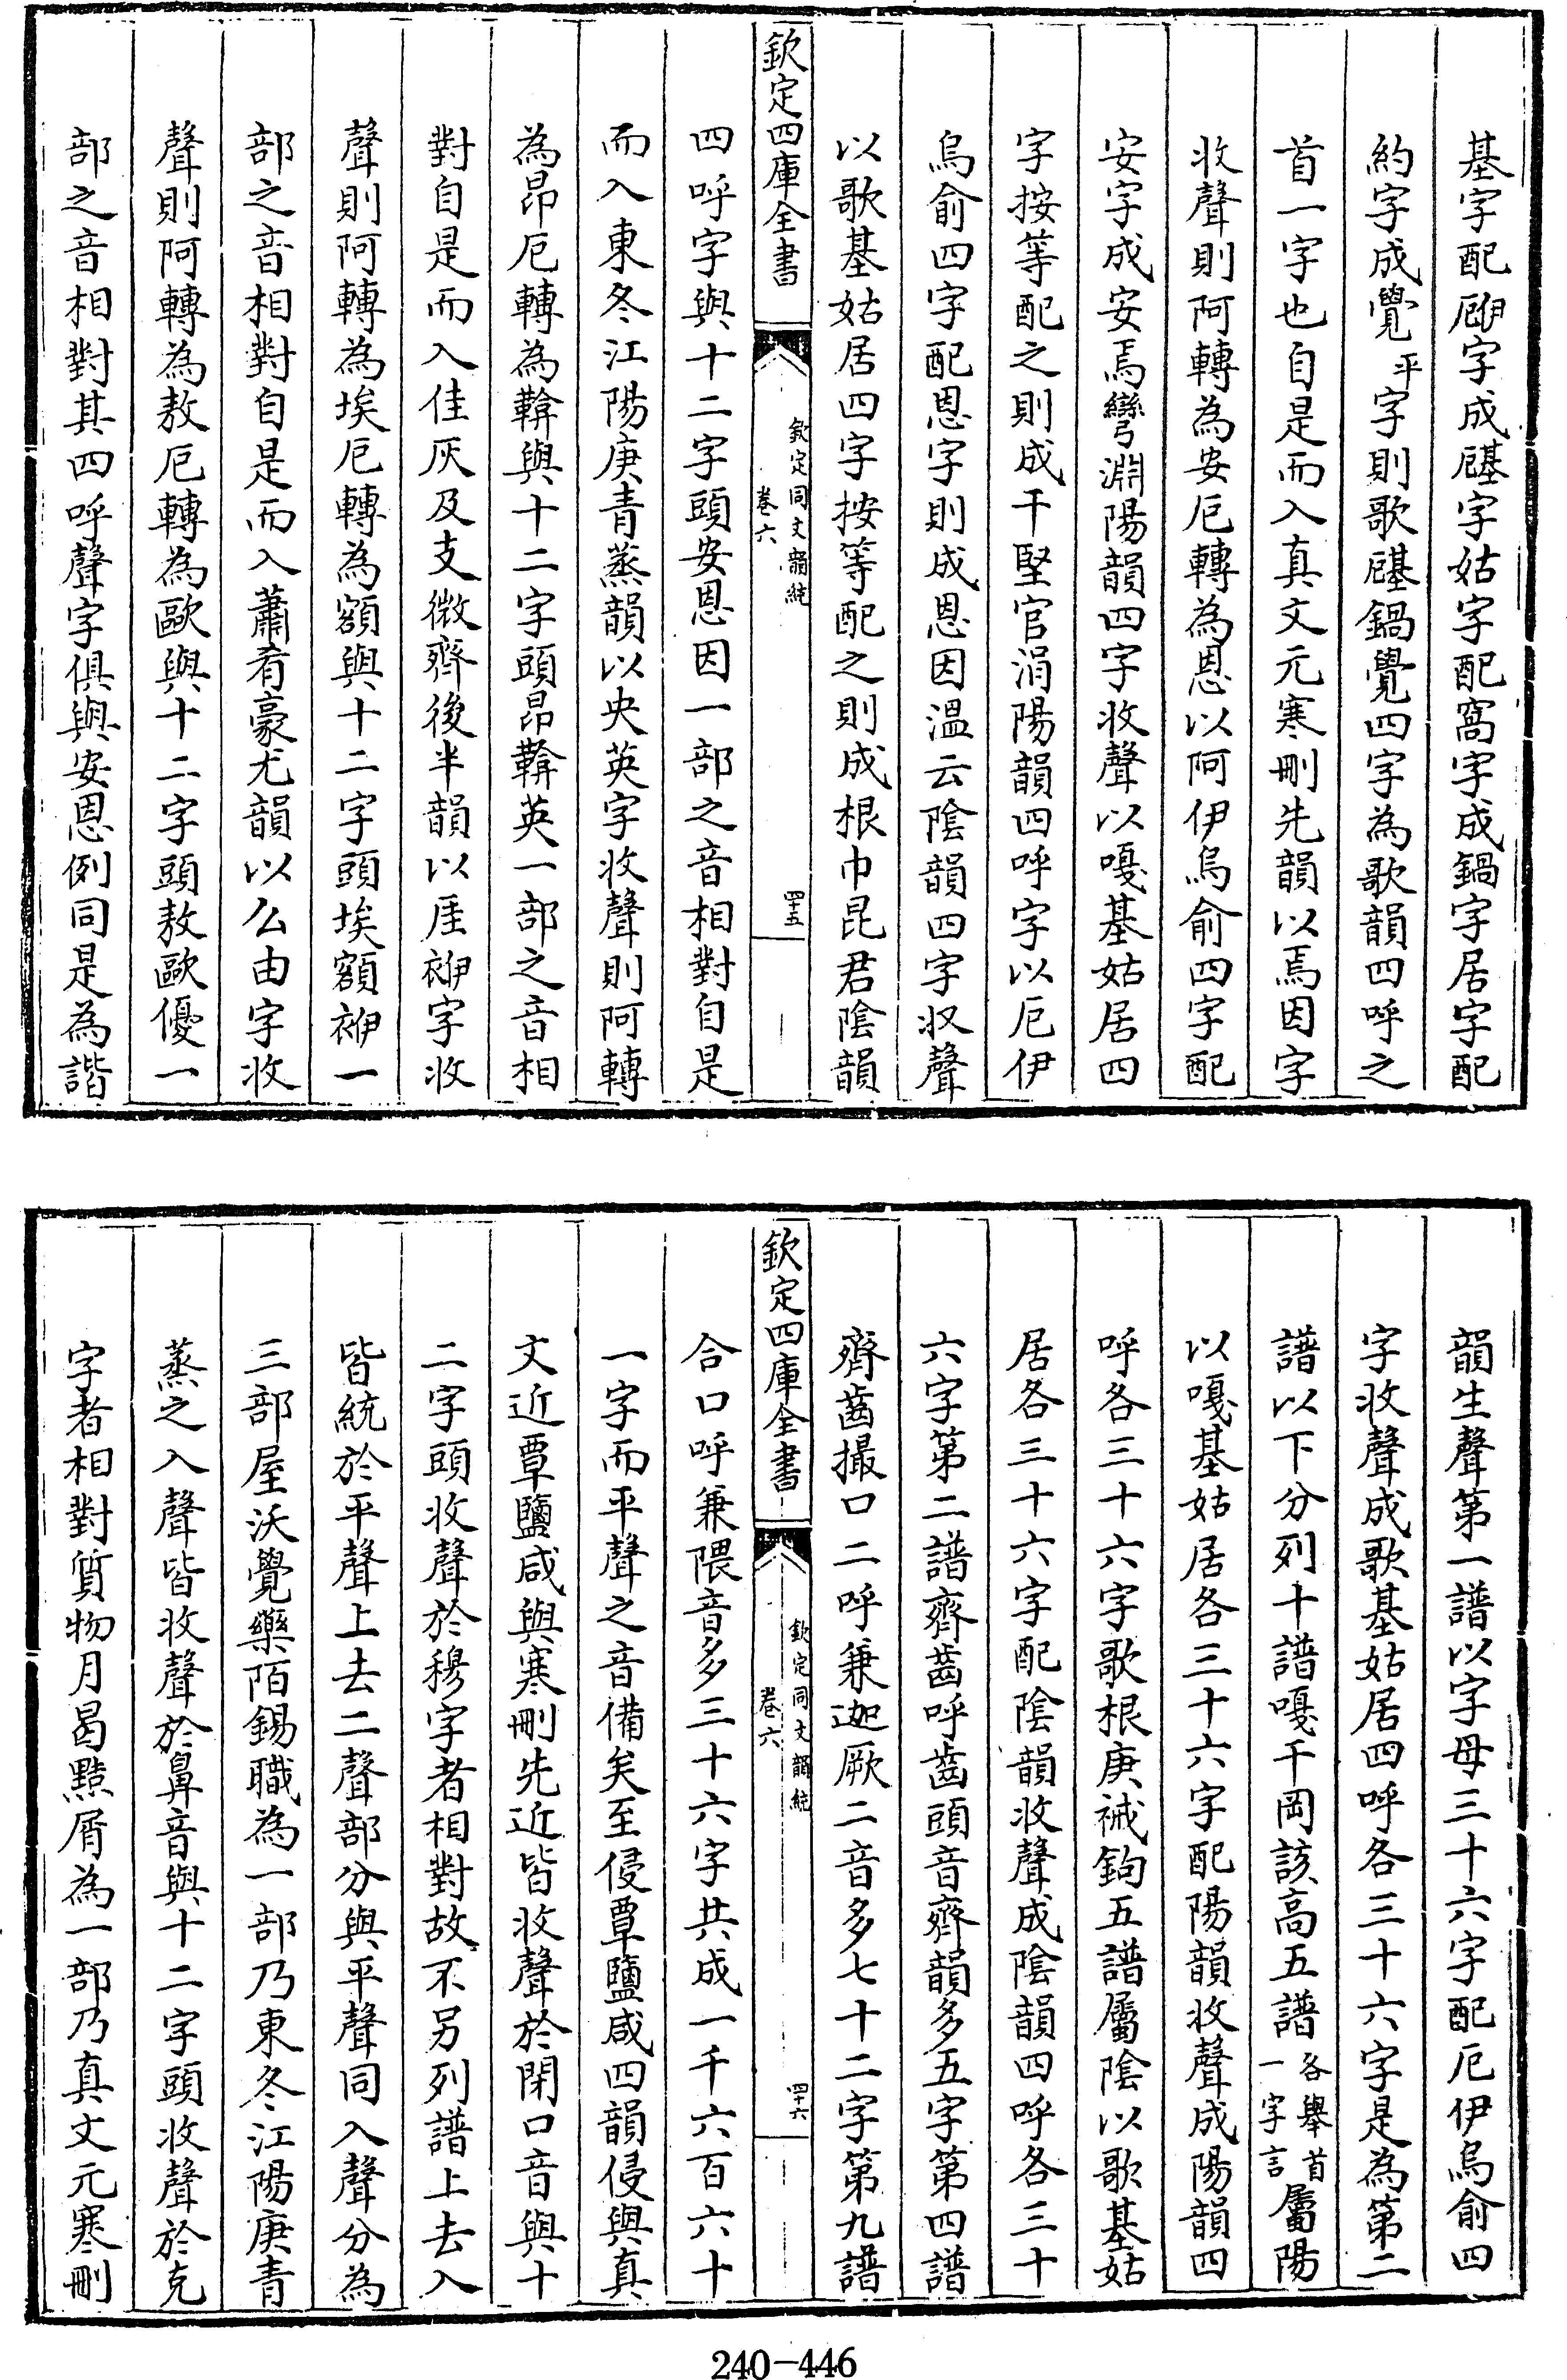 基字配𠨐字成字姑字配窩字成鍋字居字配
約字成覺平字則歌鍋覺四字為歌韻四呼之
首一字也自是而入真文元寒刪先韻以焉因字
收聲則阿轉為安厄轉為恩以阿伊烏俞四字配
安字成安焉彎淵陽韻四字收聲以嘎基姑居四
字按等配之則成干堅官涓陽韻四呼字以厄伊
烏俞四字配恩字則成恩因溫云陰韻四字収聲
以歌基姑居四字按等配之則成根巾昆君陰韻
欽定四庫全書
欽定同文韻統
卷六
四十五
四呼字與十二字頭安恩因一部之音相對自是
而入東冬江陽庚青蒸韻以央英字收聲則阿轉
為昂厄轉為鞥與十二字頭昂鞥英一部之音相
對自是而入佳灰及支微齊後半韻以厓字收
聲則阿轉為埃厄轉為額與十二字頭埃額一
部之音相對自是而入蕭肴豪尤韻以么由字收
聲則阿轉為敖厄轉為歐與十二字頭敖歐優一
部之音相對其四呼聲字俱與安恩例同是為諧
韻生聲第一譜以字母三十六字配厄伊烏俞四
字收聲成歌基姑居四呼各三十六字是為第二
譜以下分列十譜嘎干岡該高五譜各舉首一字言屬陽
以嘎基姑居各三十六字配陽韻收聲成陽韻四
呼各三十六字歌根庚祴鉤五譜屬陰以歌基姑
居各三十六字配陰韻收聲成陰韻四呼各三十
六字第二譜齊齒呼齒頭音齊韻多五字第四譜
齊齒撮口二呼兼迦厥二音多七十二字第九譜
欽定四庫全書
欽定同文韻統
卷六
四十六
合口呼兼隈音多三十六字共成一千六百六十
一字而平聲之音備矣至侵覃鹽咸四韻侵與真
文近覃鹽咸與寒刪先近皆收聲於閉口音與十
二字頭收聲於穆字者相對故不另列譜上去入
皆統於平聲上去二聲部分與平聲同入聲分為
三部屋沃覺藥陌錫職為一部乃東冬江陽庚青
蒸之入聲皆收聲於鼻音與十二字頭收聲於克
字者相對質物月曷黠屑為一部乃真文元寒刪
240-446